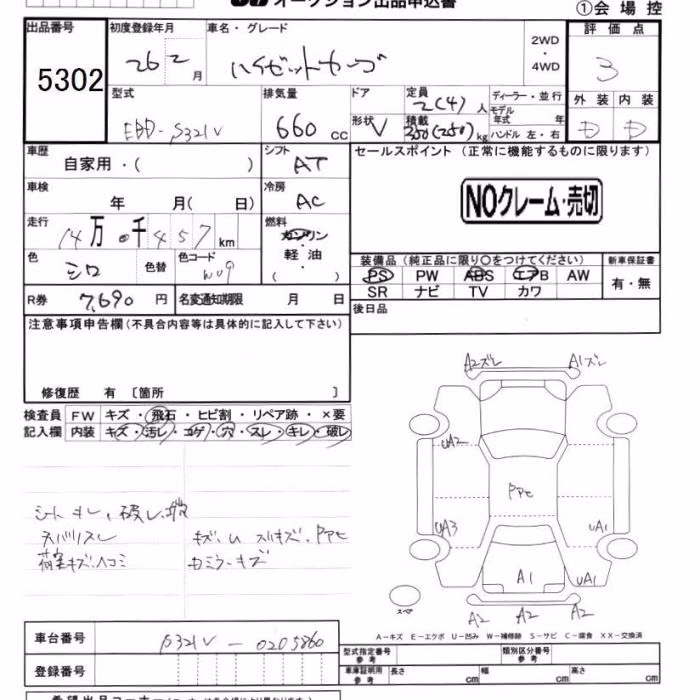 オークション出品申込書
①会場控
出品番号 初度登録年月 車名・グレード 2WD・4WD 評価点
5302 26 2月 ハイゼットカーゴ 3
型式 排気量 ドア 定員 2(4)人 ディーラー・並行 外装 内装
EBD-S321V 660cc 形状 V 積載 350(250)kg モデル年式 年 ハンドル 左・右 D D
車歴 自家用・( ) シフト AT セールスポイント (正常に機能するものに限ります)
車検 年 月( 日) 冷房 AC NOクレーム・売切
走行 14万0千457km 燃料 ガソリン・軽油・( )
色 シロ 色替 色コード W09 装備品 (純正品に限り○をつけてください) 新車保証書
PS PW ABS エアB AW 有・無
SR ナビ TV カワ
R券 7,690円 名変通知期限 月 日 後日品
注意事項申告欄 (不具合内容等は具体的に記入して下さい)
修復歴 有 〔箇所 〕
検査員 FW キズ・飛石・ヒビ割・リペア跡・×要
記入欄 内装 キズ・汚レ・コゲ・穴・スレ・キレ・破レ
A2ズレ A1ズレ
UA2
PPセ
UA3 UA1
A1 UA1
スペア
A2 A2 A2
シートキレ、破レ、
荷室キズ、ヘコミ
A－キズ E－エクボ U－凹み W－補修跡 S－サビ C－腐食 XX－交換済
車台番号 S321V－0205860
型式指定番号 参考 類別区分番号 参考
登録番号 車庫証明用 参考 長さ cm 幅 cm 高さ cm